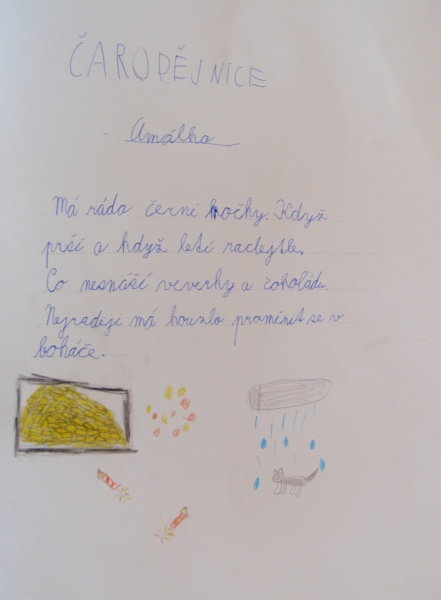 ČARODĚJNICE
Amálka
Má ráda černé kočky. Když
prší a když letí raclejtle.
Co nesnáší veverky a čokoládu.
Nejraději má kouzlo proměnit se v
boháče.